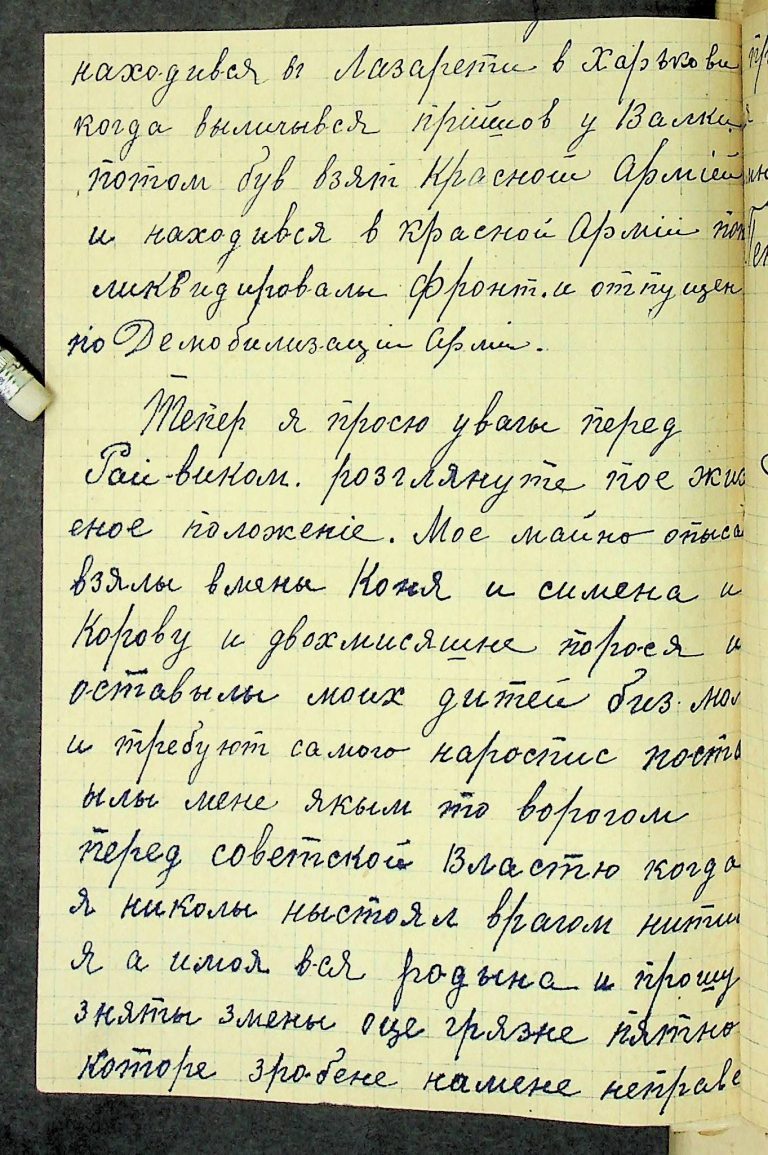 находився в Лазарети в Харькови
когда выличывся прійшов у Валки
потом був взят Красной Армііи
и находився в красной Арміи пок
ликвидировалы Фронт. и отпущен
по Демобилизаціи Арміи.
Тепер я просю увагы перед
Рай-виком. розглянуте мое жиз
еное положеніе. Мое майно описа
взялы вмены Коня и симена и
Корову и двохмисяшне порося и
оставылы моих дитей биз мол
и требуют самого нароспис поста
ылы мене якым то ворогом
перед советской Властю когда
я николы ныстоял врагом нити
я а имоя вся родына и прошу
зняты змены оце грязне пятно
которе зробене намене неправе